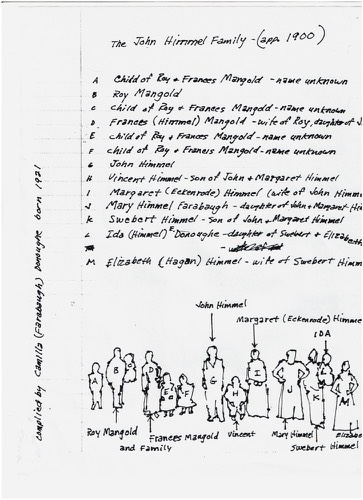 The John Himmel Family - (app. 1900)
A Child of Roy & Frances Mangold - name unknown
B Roy Mangold
C Child of Roy & Frances Mangold - name unknown
D Frances (Himmel) Mangold - wife of Roy, daughter of J
E Child of Roy & Frances Mangold - name unknown
F Child of Roy & Francis Mangold - name unknown
G John Himmel
H Vincent Himmel - son of John & Margaret Himmel
I Margaret (Eckenrode) Himmel (wife of John Himm
J Mary Himmel Farabaugh - daughter of John & Margaret Hi
K Swebert Himmel - son of John & Margaret Himmel
L Ida (Himmel) E Donoughe - daughter of Swebert & Elizabeth
M Elizabeth (Hagan) Himmel - wife of Swebert Himm
compiled by Camilla (Farabaugh) Donoughe born 1921
John Himmel
Margaret (Eckenrode) Himme
IDA
A B C D E F G H I J K L M
Roy Mangold
and Family
Frances Mangold
Vincent
Mary Himmel
Swebert Himmel
Elizabe